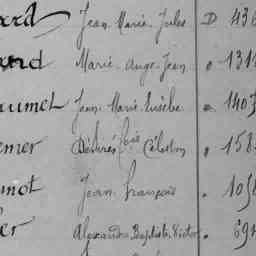 ard Jean Marie Jules D 436
and Marie Ange Jean " 131
aumet Jean Marie Eusèbe " 1407
emer Désiré fois Célestin " 158
not Jean François " 105
er Alexandre Baptiste Victor " 694